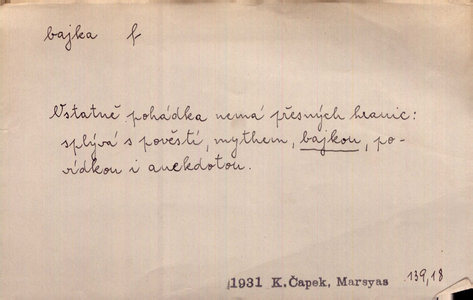 bajka f
Ostatně pohádka nemá přesných hranic:
splývá s pověstí, mythem, bajkou, po-
vídkou i anekdotou.
1931 K.Čapek, Marsyas 139,18